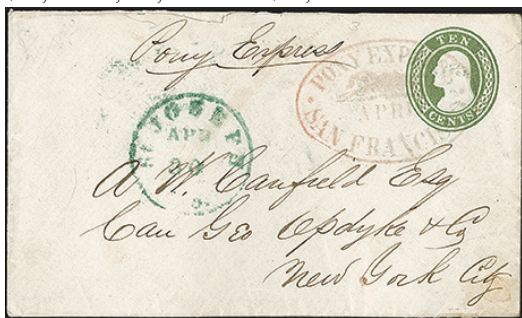 Pony Express
TEN
CENTS
PONY EXP
APRI
SAN FRANCI
ST JOSEPH
APR
A W. Canfield Esq
Cau Geo Opdyke & Co
New York City